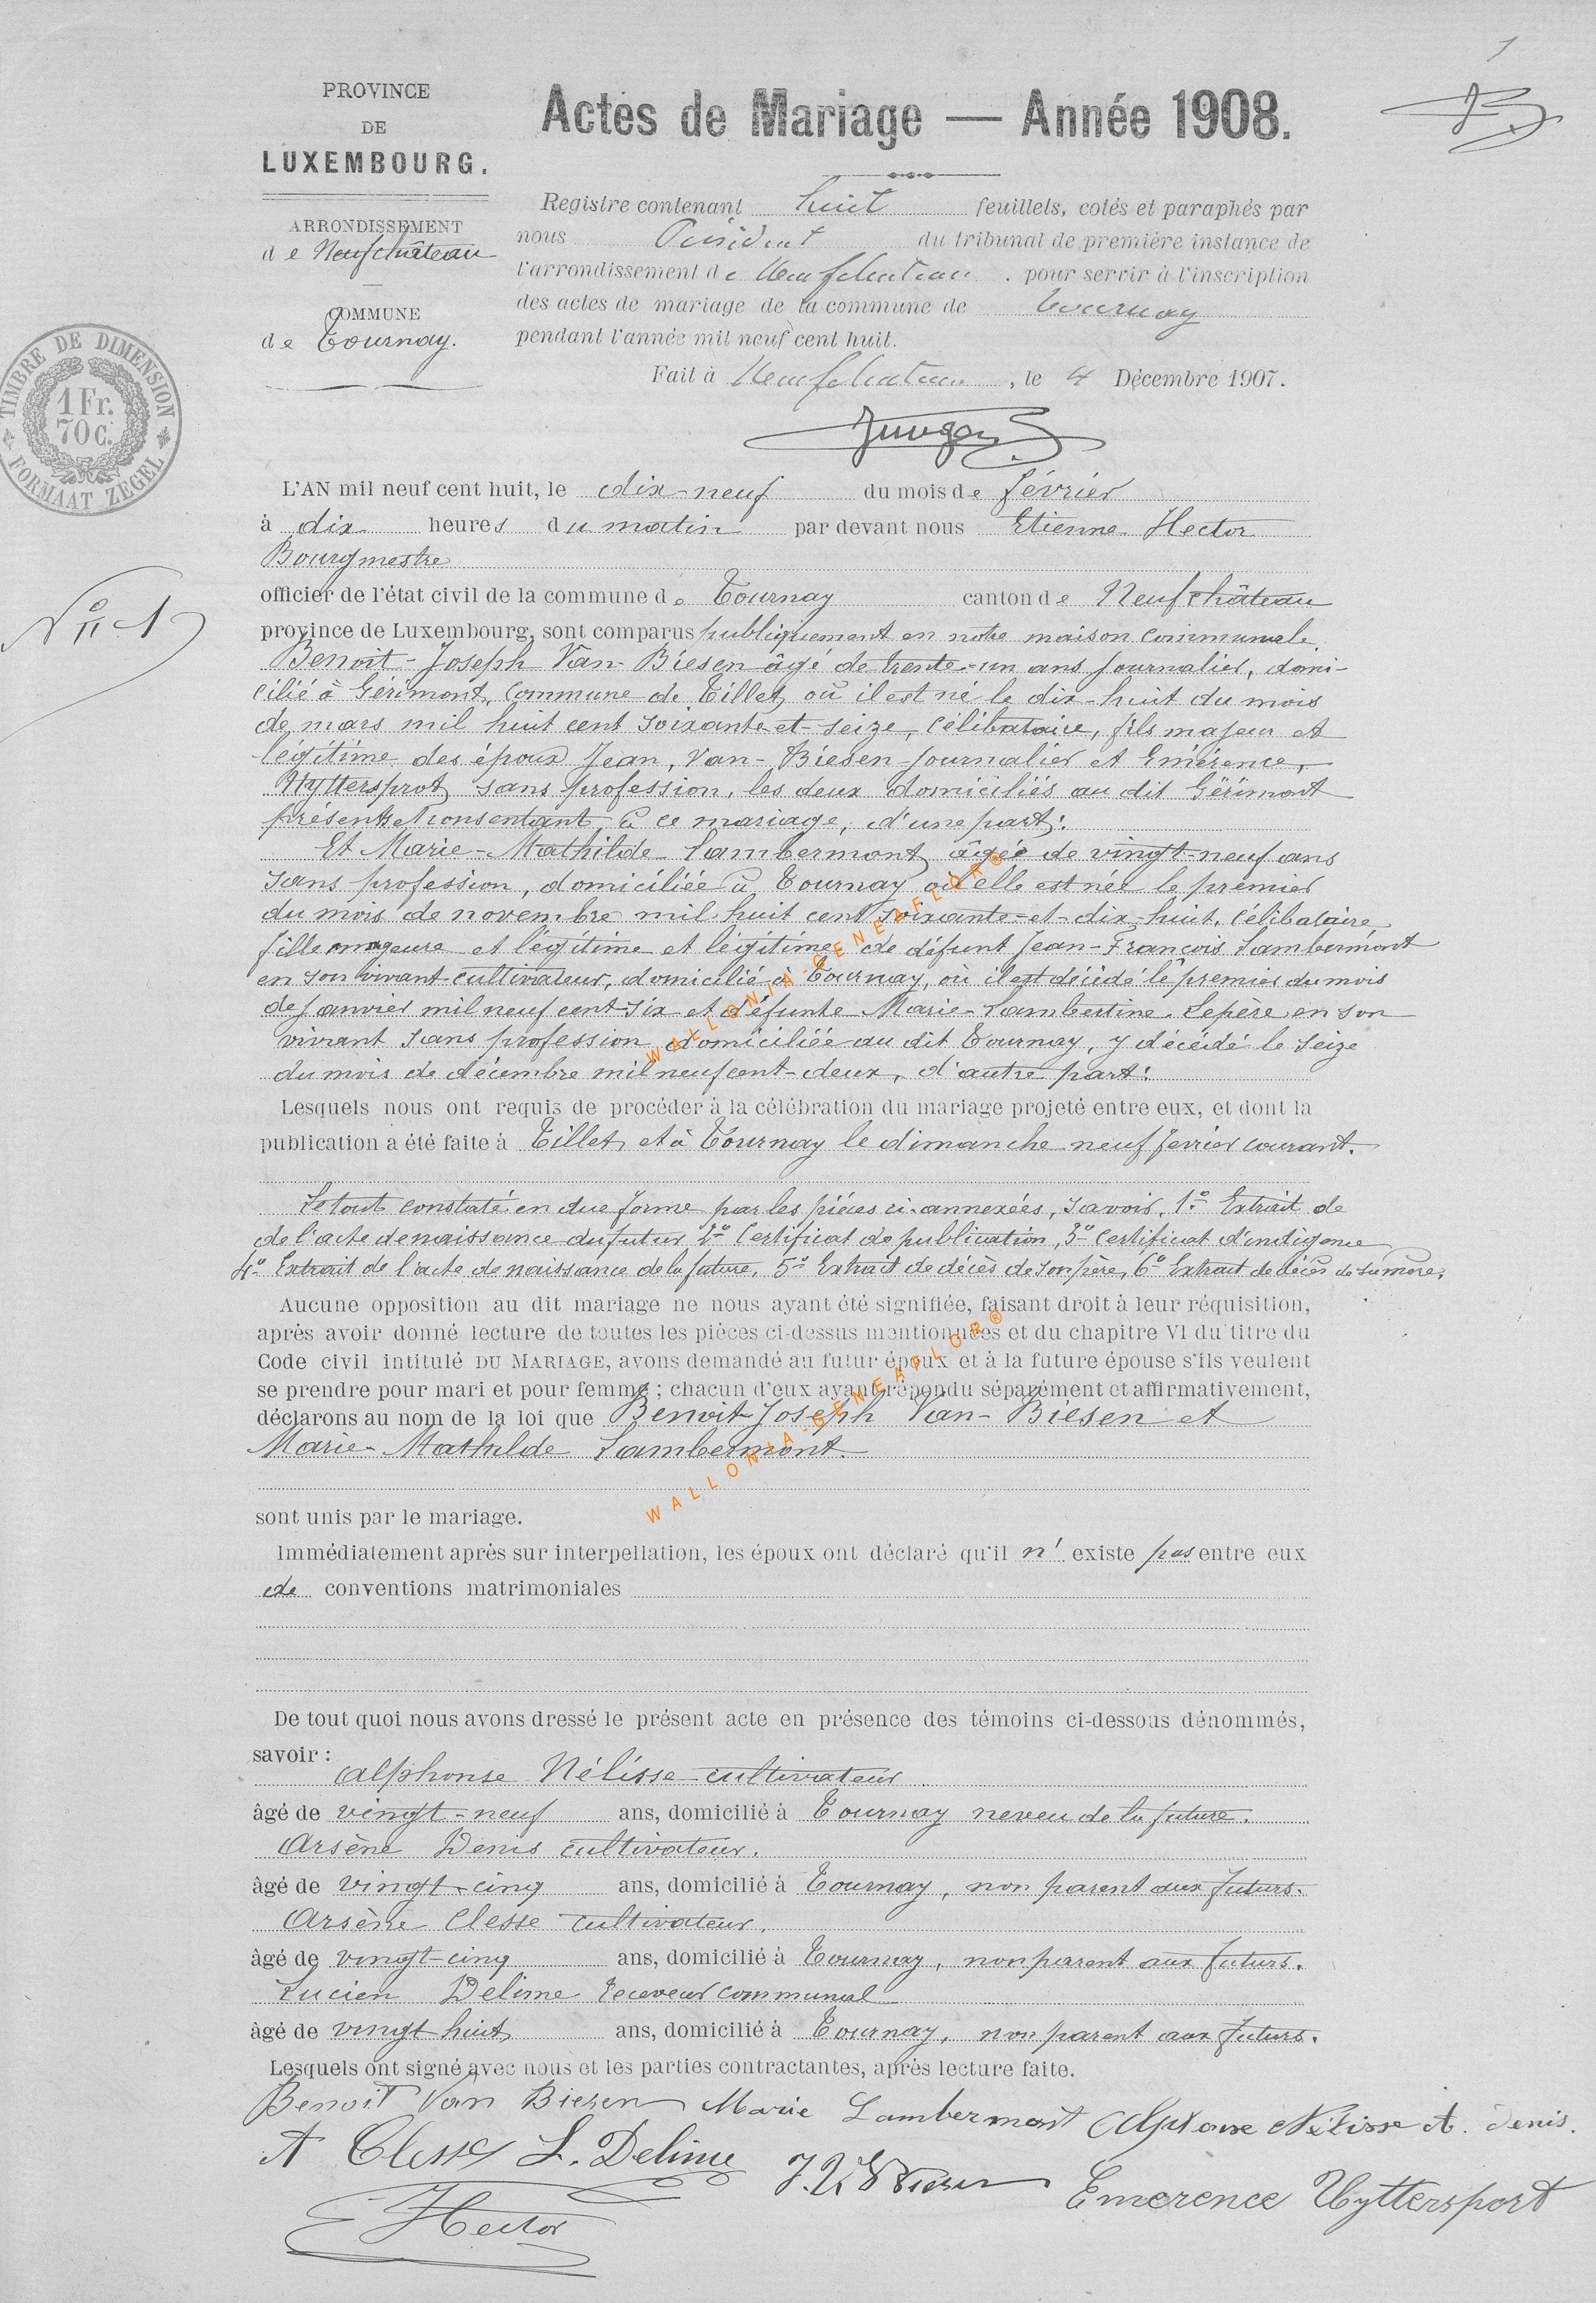 1
PROVINCE
DE
LUXEMBOURG.
ARRONDISSEMENT
de Neufchâteau
COMMUNE
de Tournay.
TIMBRE DE DIMENSION
1 Fr.
70 C.
FORMAAT ZEGEL
Actes de Mariage — Année 1908.
Registre contenant huit feuillets, cotés et paraphés par
nous Président du tribunal de première instance de
l'arrondissement de Neufchateau . pour servir à l'inscription
des actes de mariage de la commune de Tournay
pendant l'année mil neuf cent huit.
Fait à Neufchateau , le 4 Décembre 1907.
N° 1
L'AN mil neuf cent huit, le dix-neuf du mois de février
à dix heures du matin par devant nous Etienne Hector
Bourgmestre
officier de l'état civil de la commune de Tournay canton de Neufchâteau
province de Luxembourg, sont comparus publiquement en notre maison communale
Benoit-Joseph Van-Biesen âgé de trente-un ans journalier, domi-
cilié à Gérimont, Commune de Tillet, où il est né le dix-huit du mois
de mars mil huit cent soixante-et-seize, célibataire, fils majeur et
légitime des époux Jean, Van-Biesen journalier et Emérence,
Uyttersprot, sans profession, les deux domiciliés au dit Gérimont
présents et consentant à ce mariage, d'une part:
Et Marie-Mathilde Lambermont, âgée de vingt-neuf ans
sans profession, domiciliée à Tournay où elle est née le premier
du mois de novembre mil huit cent soixante-et-dix-huit, célibataire
fille majeure et légitime et légitime de défunt Jean-François Lambermont
en son vivant cultivateur, domicilié à Tournay, où il est décédé le premier du mois
de janvier mil neuf cent six et défunte Marie-Lambertine Lepère en son
vivant sans profession domiciliée au dit Tournay, y décédé le seize
du mois de décembre mil neuf cent-deux, d'autre part:
Lesquels nous ont requis de procéder à la célébration du mariage projeté entre eux, et dont la
publication a été faite à Tillet, et à Tournay le dimanche neuf fevrier courant.
Le tout constaté en due forme par les pièces ci-annexées, savoir, 1° Extrait de
de l'acte de naissance du futur 2° Certificat de publication, 3° certificat d'indigence
4° Extrait de l'acte de naissance de la future, 5° Extrait de décès de son père, 6° Extrait de décès de sa mère.
Aucune opposition au dit mariage ne nous ayant été signifiée, faisant droit à leur réquisition,
après avoir donné lecture de toutes les pièces ci-dessus mentionnées et du chapitre VI du titre du
Code civil intitulé DU MARIAGE, avons demandé au futur époux et à la future épouse s'ils veulent
se prendre pour mari et pour femme ; chacun d'eux ayant répondu séparément et affirmativement,
déclarons au nom de la loi que Benoit-Joseph Van-Biesen et
Marie-Mathilde Lambermont.
sont unis par le mariage.
Immédiatement après sur interpellation, les époux ont déclaré qu'il n' existe pas entre eux
de conventions matrimoniales
De tout quoi nous avons dressé le présent acte en présence des témoins ci-dessous dénommés,
savoir :
Alphonse Nélisse cultivateur
âgé de vingt-neuf ans, domicilié à Tournay neveu de la future.
Arsène Denis cultivateur.
âgé de vingt-cinq ans, domicilié à Tournay, non parent aux futurs.
Arsène Clesse cultivateur.
âgé de vingt-cinq ans, domicilié à Tournay, non parent aux futurs.
Lucien Delime receveur communal
âgé de vingt huit ans, domicilié à Tournay, non parent aux futurs.
Lesquels ont signé avec nous et les parties contractantes, après lecture faite.
Benoit Van Biesen Marie Lambermont Alphonse Nélisse A. Denis.
A Clesse L. Delime J. V Biesen Emerence Uyttersport
E Hector
WALLONIA-GENEAFLOR®
WALLONIA-GENEAFLOR®